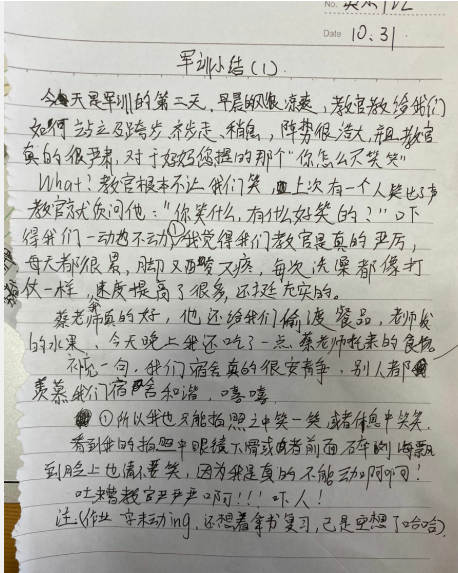 No.
Date 10.31
军训小结(1).
今天是军训的第二天,早晨的风很凉爽,教官教给我们
如何站立及跨步 齐步走、稍息,阵势很浩大,且教官
真的很严肃,对于妈妈您提的那个"你怎么不笑笑"
What?教官根本不让我们笑,上次有一个人笑出了声
教官就质问他:"你笑什么,有什么好笑的?"吓
得我们一动也不动,①我觉得我们教官是真的严厉,
每天都很累,脚又酸又疼,每次洗澡都像打
仗一样,速度提高了很多,还挺充实的。
蔡老师真的好,他还给我们偷渡餐品,老师发
的水果,今天晚上我还吃了一点蔡老师托来的食物
补充一句,我们宿舍真的很安静,别人都
羡慕我们宿舍和谐,嘻嘻.
①所以我也只能拍照之中笑一笑,或者休息中笑笑.
看到我的拍照中眼镜下滑或者前面碎的海飘
到脸上也请不要笑,因为我是真的不能动啊啊!
吐槽教官严严严啊!!!吓人!
注(作业一字未动ing,还想着拿书复习,已是空想了哈哈)